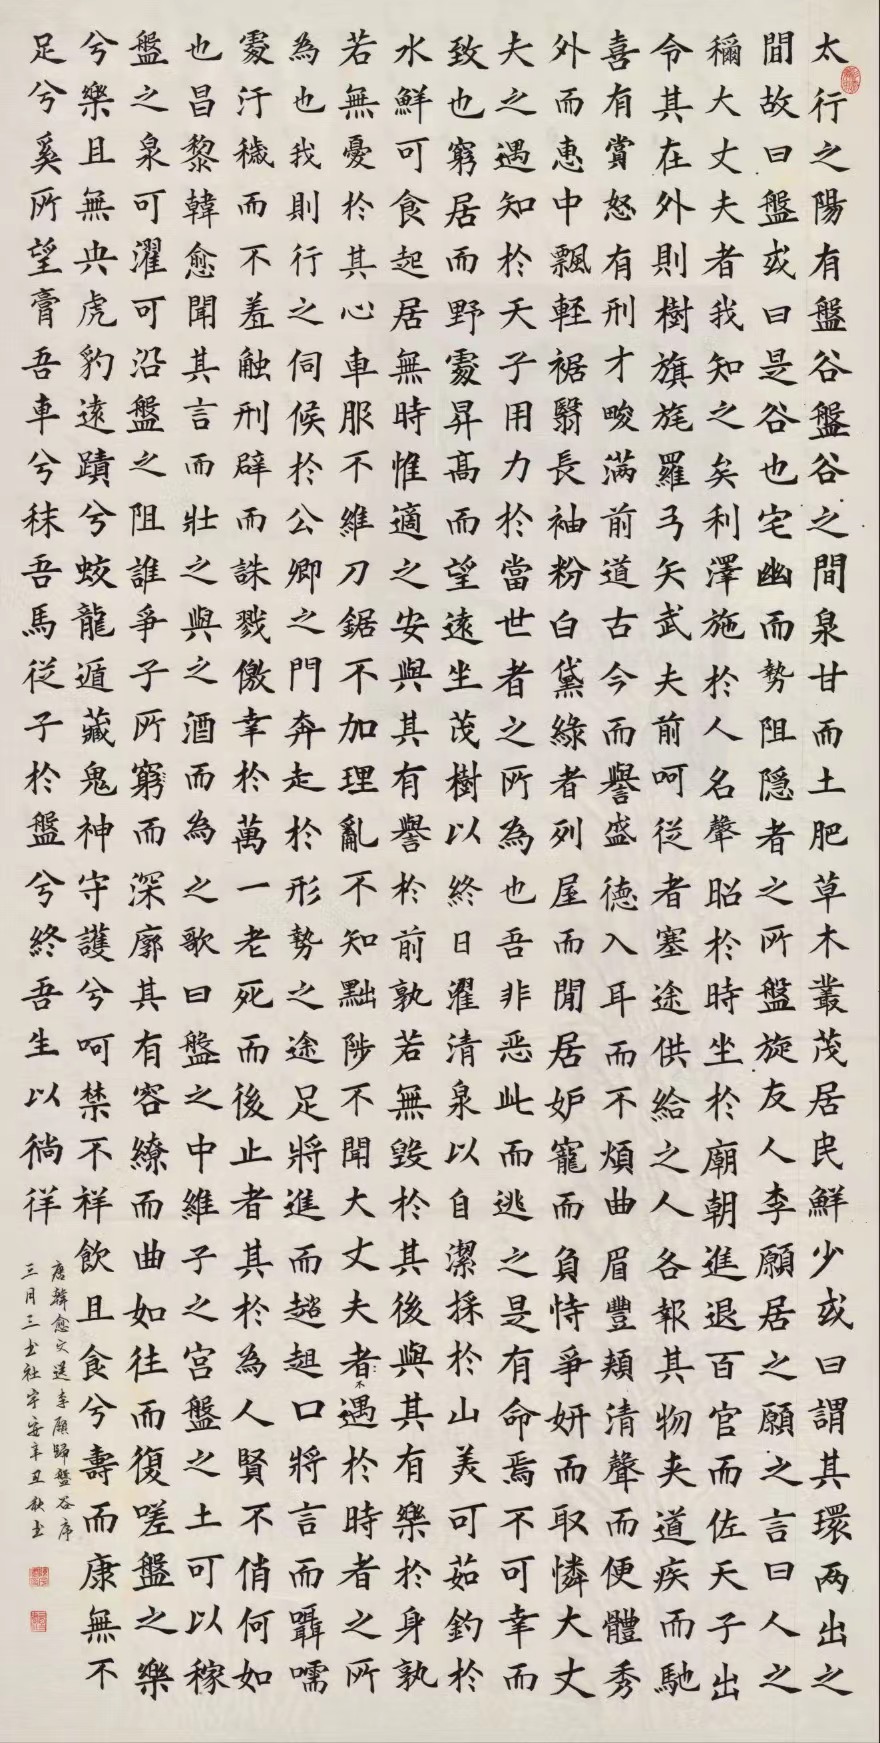 太行之陽有盤谷盤谷之間泉甘而土肥草木叢茂居民鮮少或曰謂其環两出之
間故曰盤或曰是谷也宅幽而勢阻隐者之所盤旋友人李願居之願之言曰人之
稱大丈夫者我知之矣利澤施於人名聲昭於時坐於廟朝進退百官而佐天子出
令其在外則樹旗旄羅弓矢武夫前呵從者塞途供給之人各報其物夾道疾而馳
喜有賞怒有刑才畯滿前道古今而譽盛德入耳而不煩曲眉豐頰清聲而便體秀
外而惠中飄輕裾翳長袖粉白黛綠者列屋而閒居妒寵而負恃爭妍而取憐大丈
夫之遇知於天子用力於當世者之所為也吾非惡此而逃之是有命焉不可幸而
致也窮居而野處昇高而望遠坐茂樹以終日濯清泉以自潔採於山美可茹釣於
水鮮可食起居無時惟適之安與其有譽於前孰若無毀於其後與其有樂於身孰
若無憂於其心車服不維刀鋸不加理亂不知黜陟不聞大丈夫者不遇於時者之所
為也我則行之伺候於公卿之門奔走於形勢之途足將進而趑趄口將言而囁嚅
處汙穢而不羞触刑辟而誅戮儌幸於萬一老死而後止者其於為人賢不俏何如
也昌黎韓愈聞其言而壯之與之酒而為之歌曰盤之中維子之宮盤之土可以稼
盤之泉可濯可沿盤之阻誰爭子所窮而深廓其有容繚而曲如往而復嗟盤之樂
兮樂且無央虎豹遠蹟兮蛟龍遁藏鬼神守護兮呵禁不祥飲且食兮壽而康無不
足兮奚所望膏吾車兮秣吾馬從子於盤兮終吾生以徜徉
唐韓愈文送李願歸盤谷序
三月三書社宇安辛丑秋書